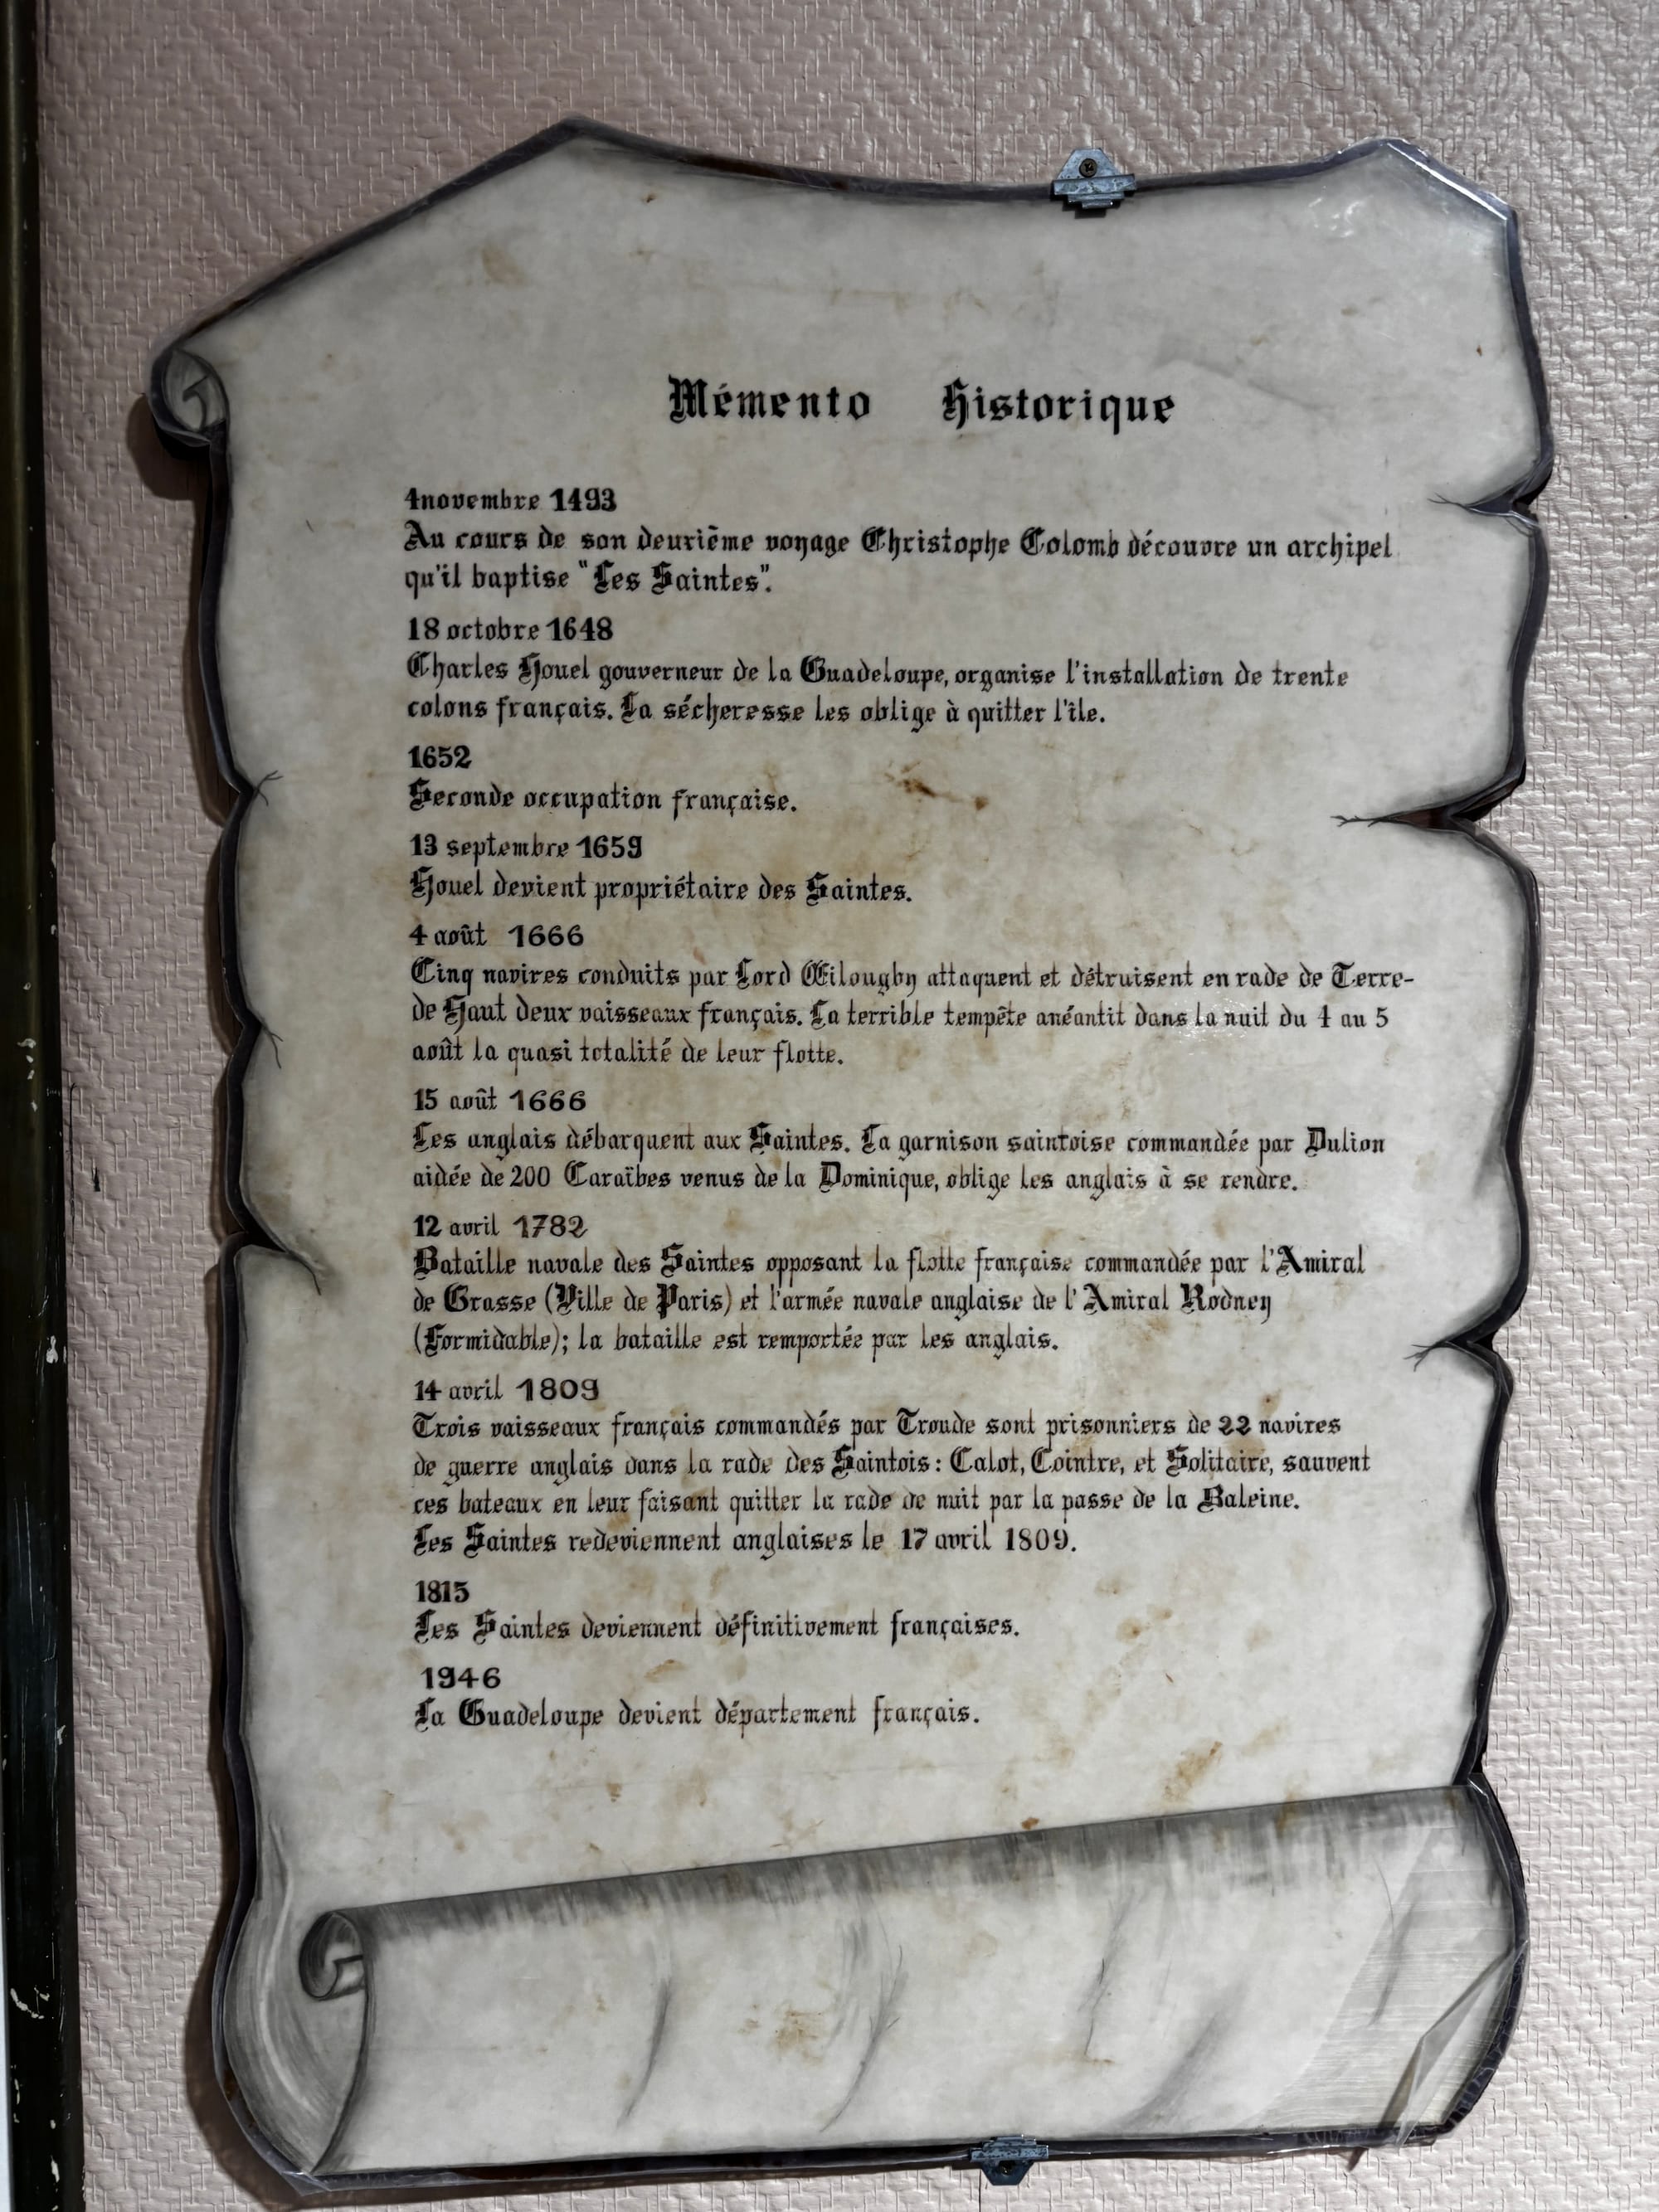 Mémento Historique
4novembre 1493
Au cours de son deuxième voyage Christophe Colomb découvre un archipel
qu'il baptise "Les Saintes".
18 octobre 1648
Charles Houel gouverneur de la Guadeloupe, organise l'installation de trente
colons français. La sécheresse les oblige à quitter l'île.
1652
Seconde occupation française.
13 septembre 1659
Houel devient propriétaire des Saintes.
4 août 1666
Cinq navires conduits par Lord Œilougby attaquent et détruisent en rade de Terre-
de Haut deux vaisseaux français. La terrible tempête anéantit dans la nuit du 4 au 5
août la quasi totalité de leur flotte.
15 août 1666
Les anglais débarquent aux Saintes. La garnison saintoise commandée par Dulion
aidée de 200 Caraïbes venus de la Dominique, oblige les anglais à se rendre.
12 avril 1782
Bataille navale des Saintes opposant la flotte française commandée par l'Amiral
de Grasse (Ville de Paris) et l'armée navale anglaise de l'Amiral Rodney
(Formidable); la bataille est remportée par les anglais.
14 avril 1809
Trois vaisseaux français commandés par Troude sont prisonniers de 22 navires
de guerre anglais dans la rade des Saintois: Calot, Cointre, et Solitaire, sauvent
ces bateaux en leur faisant quitter la rade de nuit par la passe de la Baleine.
Les Saintes redeviennent anglaises le 17 avril 1809.
1815
Les Saintes deviennent définitivement françaises.
1946
La Guadeloupe devient département français.